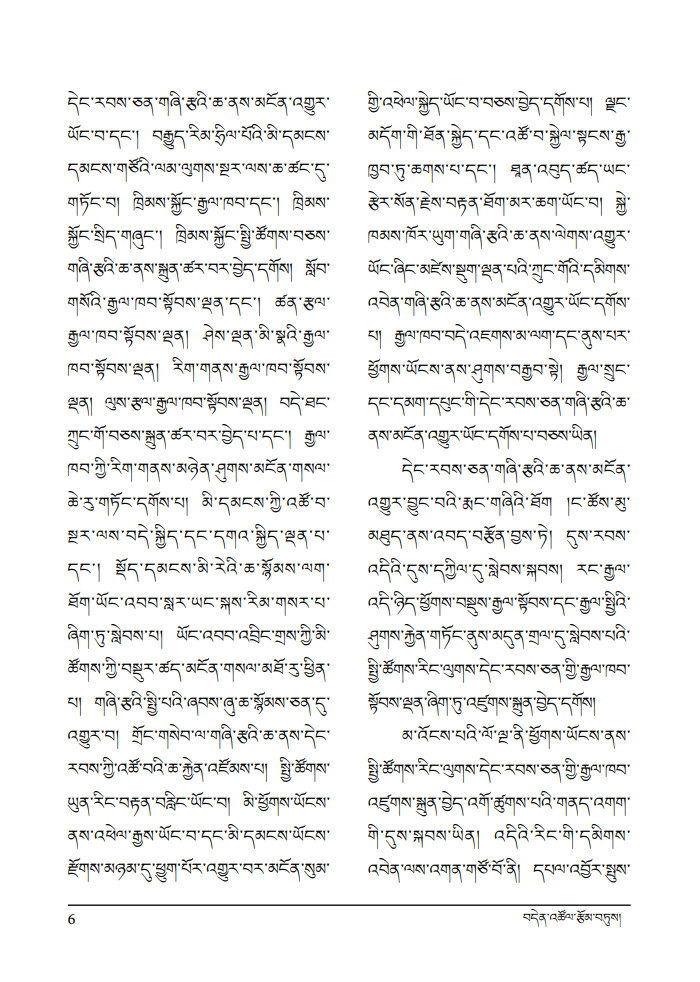 དེང་རབས་ཅན་གཞི་རྩའི་ཆ་ནས་མངོན་འགྱུར་
ཡོང་བ་དང་། བརྒྱུད་རིམ་ཧྲིལ་པོའི་མི་དམངས་
དམངས་གཙོའི་ལམ་ལུགས་སྔར་ལས་ཆ་ཚང་དུ་
གཏོང་བ། ཁྲིམས་སྐྱོང་རྒྱལ་ཁབ་དང་། ཁྲིམས་
སྐྱོང་སྲིད་གཞུང་། ཁྲིམས་སྐྱོང་སྤྱི་ཚོགས་བཅས་
གཞི་རྩའི་ཆ་ནས་སྐྲུན་ཚར་བར་བྱེད་དགོས། སློབ་
གསོའི་རྒྱལ་ཁབ་སྟོབས་ལྡན་དང་། ཚན་རྩལ་
རྒྱལ་ཁབ་སྟོབས་ལྡན། ཤེས་ལྡན་མི་སྣའི་རྒྱལ་
ཁབ་སྟོབས་ལྡན། རིག་གནས་རྒྱལ་ཁབ་སྟོབས་
ལྡན། ལུས་རྩལ་རྒྱལ་ཁབ་སྟོབས་ལྡན། བདེ་ཐང་
ཀྲུང་གོ་བཅས་སྐྲུན་ཚར་བར་བྱེད་པ་དང་། རྒྱལ་
ཁབ་ཀྱི་རིག་གནས་མཉེན་ཤུགས་མངོན་གསལ་
ཆེ་རུ་གཏོང་དགོས་པ། མི་དམངས་ཀྱི་འཚོ་བ་
སྔར་ལས་བདེ་སྐྱིད་དང་དགའ་སྐྱིད་ལྡན་པ་
དང་། སྡོད་དམངས་མི་རེའི་ཆ་སྙོམས་ལག་
ཐོག་ཡོང་འབབ་སླར་ཡང་སྐས་རིམ་གསར་པ་
ཞིག་ཏུ་སླེབས་པ། ཡོང་འབབ་འབྲིང་གྲས་ཀྱི་མི་
ཚོགས་ཀྱི་བསྡུར་ཚད་མངོན་གསལ་མཐོ་རུ་ཕྱིན་
པ། གཞི་རྩའི་སྤྱི་པའི་ཞབས་ཞུ་ཆ་སྙོམས་ཅན་དུ་
འགྱུར་བ། གྲོང་གསེབ་ལ་གཞི་རྩའི་ཆ་ནས་དེང་
རབས་ཀྱི་འཚོ་བའི་ཆ་རྐྱེན་འཛོམས་པ། སྤྱི་ཚོགས་
ཡུན་རིང་བརྟན་བརླིང་ཡོང་བ། མི་ཕྱོགས་ཡོངས་
ནས་འཕེལ་རྒྱས་ཡོང་བ་དང་མི་དམངས་ཡོངས་
རྫོགས་མཉམ་དུ་ཕྱུག་པོར་འགྱུར་བར་མངོན་སུམ་
གྱི་འཕེལ་སྐྱེད་ཡོང་བ་བཅས་བྱེད་དགོས་པ། ལྗང་
མདོག་གི་ཐོན་སྐྱེད་དང་འཚོ་བ་སྐྱེལ་སྟངས་རྒྱ་
ཁྱབ་ཏུ་ཆགས་པ་དང་། ཐན་འབུད་ཚད་ཡང་
རྩེར་སོན་རྗེས་བརྟན་ཐོག་མར་ཆག་ཡོང་བ། སྐྱེ་
ཁམས་ཁོར་ཡུག་གཞི་རྩའི་ཆ་ནས་ལེགས་འགྱུར་
ཡོང་ཞིང་མཛེས་སྡུག་ལྡན་པའི་ཀྲུང་གོའི་དམིགས་
འབེན་གཞི་རྩའི་ཆ་ནས་མངོན་འགྱུར་ཡོང་དགོས་
པ། རྒྱལ་ཁབ་བདེ་འཇགས་མ་ལག་དང་ནུས་པར་
ཕྱོགས་ཡོངས་ནས་ཤུགས་བརྒྱབ་སྟེ། རྒྱལ་སྲུང་
དང་དམག་དཔུང་གི་དེང་རབས་ཅན་གཞི་རྩའི་ཆ་
ནས་མངོན་འགྱུར་ཡོང་དགོས་པ་བཅས་ཡིན།
དེང་རབས་ཅན་གཞི་རྩའི་ཆ་ནས་མངོན་
འགྱུར་བྱུང་བའི་རྨང་གཞིའི་ཐོག །ང་ཚོས་མུ་
མཐུད་ནས་འབད་བརྩོན་བྱས་ཏེ། དུས་རབས་
འདིའི་དུས་དཀྱིལ་དུ་སླེབས་སྐབས། རང་རྒྱལ་
འདི་ཉིད་ཕྱོགས་བསྡུས་རྒྱལ་སྟོབས་དང་རྒྱལ་སྤྱིའི་
ཤུགས་རྐྱེན་གཏོང་ནུས་མདུན་གྲལ་དུ་སླེབས་པའི་
སྤྱི་ཚོགས་རིང་ལུགས་དེང་རབས་ཅན་གྱི་རྒྱལ་ཁབ་
སྟོབས་ལྡན་ཞིག་ཏུ་འཛུགས་སྐྲུན་བྱེད་དགོས།
མ་འོངས་པའི་ལོ་ལྔ་ནི་ཕྱོགས་ཡོངས་ནས་
སྤྱི་ཚོགས་རིང་ལུགས་དེང་རབས་ཅན་གྱི་རྒྱལ་ཁབ་
འཛུགས་སྐྲུན་བྱེད་འགོ་ཚུགས་པའི་གནད་འགག་
གི་དུས་སྐབས་ཡིན། འདིའི་རིང་གི་དམིགས་
འབེན་ལས་འགན་གཙོ་བོ་ནི། དཔལ་འབྱོར་སྤུས་
6 བདེན་འཚོལ་རྩོམ་བཏུས།